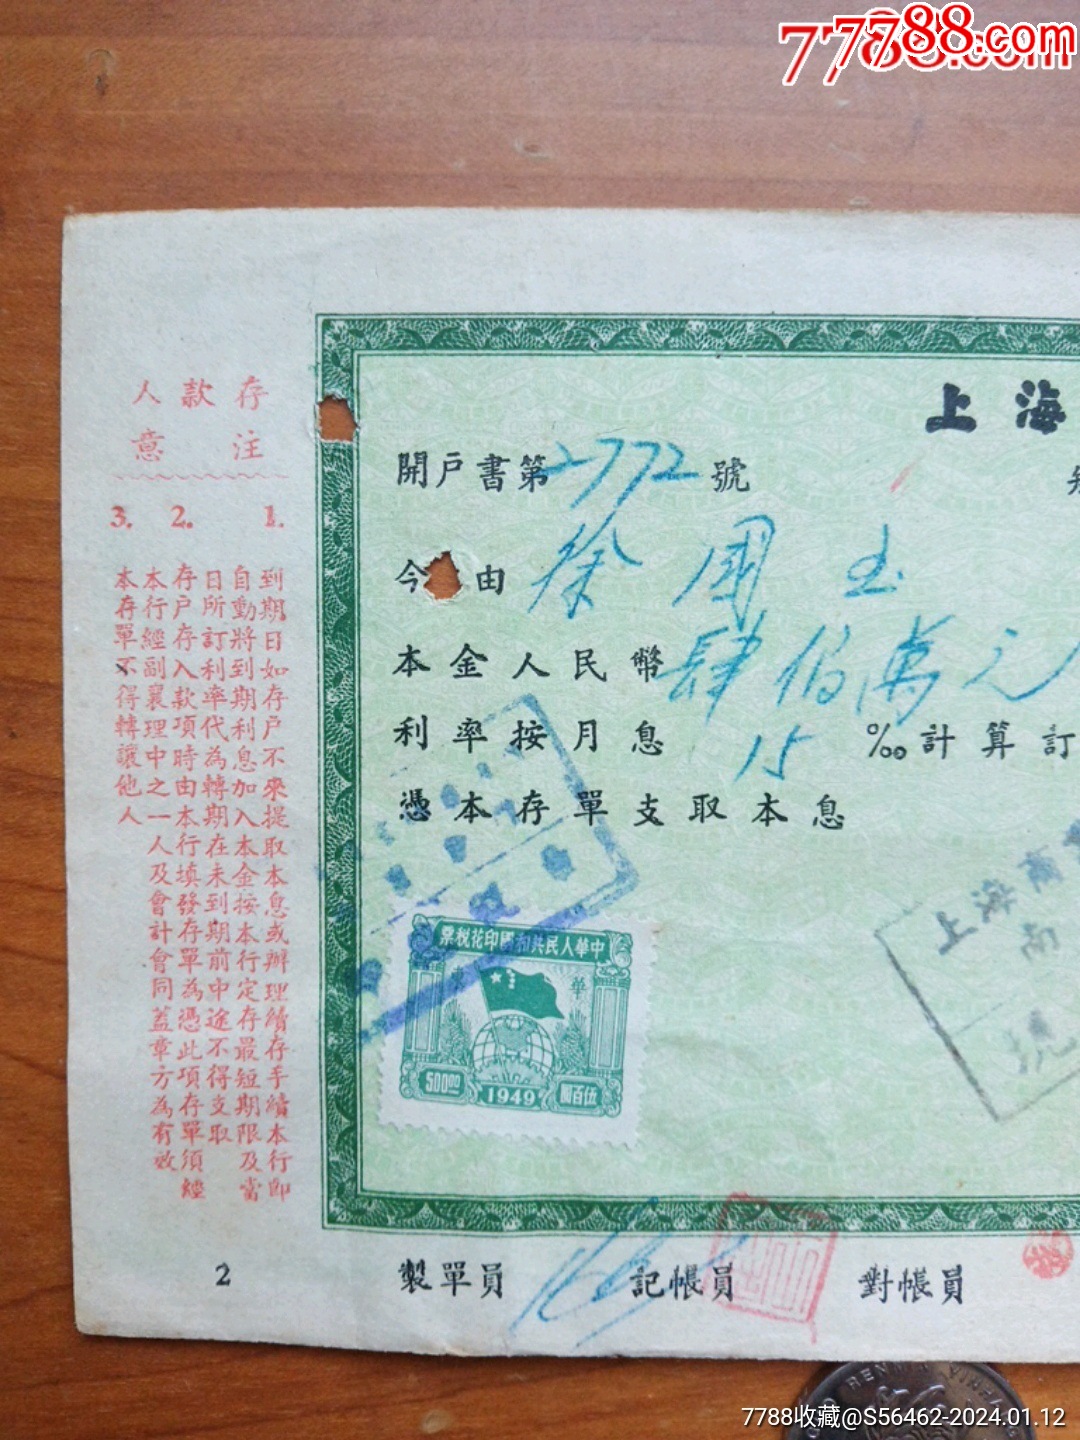 7788.com
7788.com
上海
開戶書第2772號
今由徐國玉
本金人民幣肆佰萬元
利率按月息15‰計算訂
憑本存單支取本息
存款人
注意
1. 到期日如存戶不來提取本息或辦理續存手續本行即
自動將到期利息加入本金按本行定存最短期限及當
日所訂利率代為轉期在未到期前中途不得支取
2. 存戶存入款項時由本行填發存單為憑此項存單須經
本行經副襄理中之一人及會計會同蓋章方為有效
3. 本存單不得轉讓他人
中華人民共和國印花稅票
華東
500.00
1949
伍百圓
上海商
南
2
製單員
記帳員
對帳員
7788收藏@S56462-2024.01.12